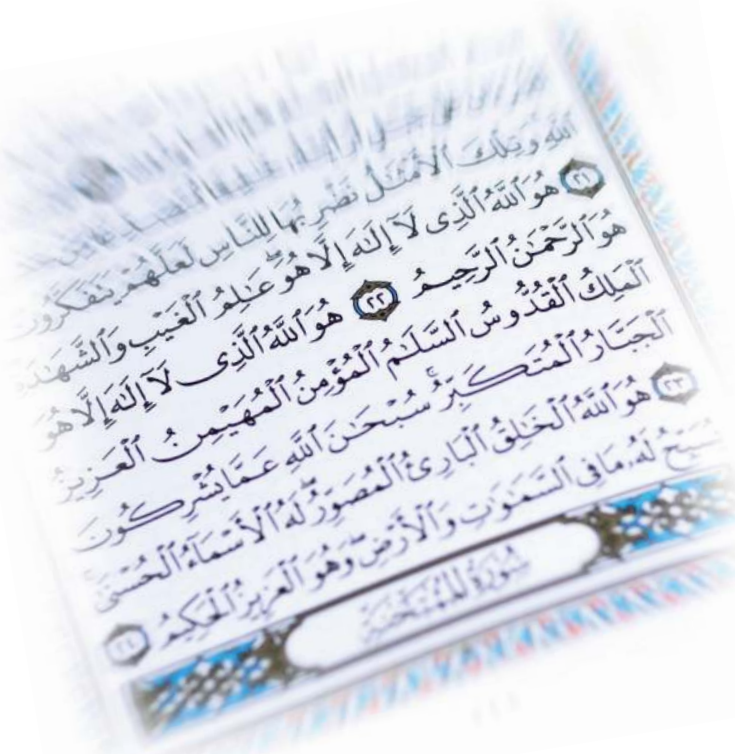 ٱللَّهِ وَتِلْكَ ٱلْأَمْثَٰلُ نَضْرِبُهَا لِلنَّاسِ لَعَلَّهُمْ يَتَفَكَّرُونَ
٢١ هُوَ ٱللَّهُ ٱلَّذِى لَآ إِلَٰهَ إِلَّا هُوَ ۖ عَٰلِمُ ٱلْغَيْبِ وَٱلشَّهَٰدَةِ
هُوَ ٱلرَّحْمَٰنُ ٱلرَّحِيمُ ٢٢ هُوَ ٱللَّهُ ٱلَّذِى لَآ إِلَٰهَ إِلَّا هُوَ
ٱلْمَلِكُ ٱلْقُدُّوسُ ٱلسَّلَٰمُ ٱلْمُؤْمِنُ ٱلْمُهَيْمِنُ ٱلْعَزِيزُ
ٱلْجَبَّارُ ٱلْمُتَكَبِّرُ ۚ سُبْحَٰنَ ٱللَّهِ عَمَّا يُشْرِكُونَ
٢٣ هُوَ ٱللَّهُ ٱلْخَٰلِقُ ٱلْبَارِئُ ٱلْمُصَوِّرُ ۖ لَهُ ٱلْأَسْمَآءُ ٱلْحُسْنَىٰ ۚ
يُسَبِّحُ لَهُۥ مَا فِى ٱلسَّمَٰوَٰتِ وَٱلْأَرْضِ ۖ وَهُوَ ٱلْعَزِيزُ ٱلْحَكِيمُ ٢٤
سُورَةُ ٱلْمُمْتَحِنَةِ